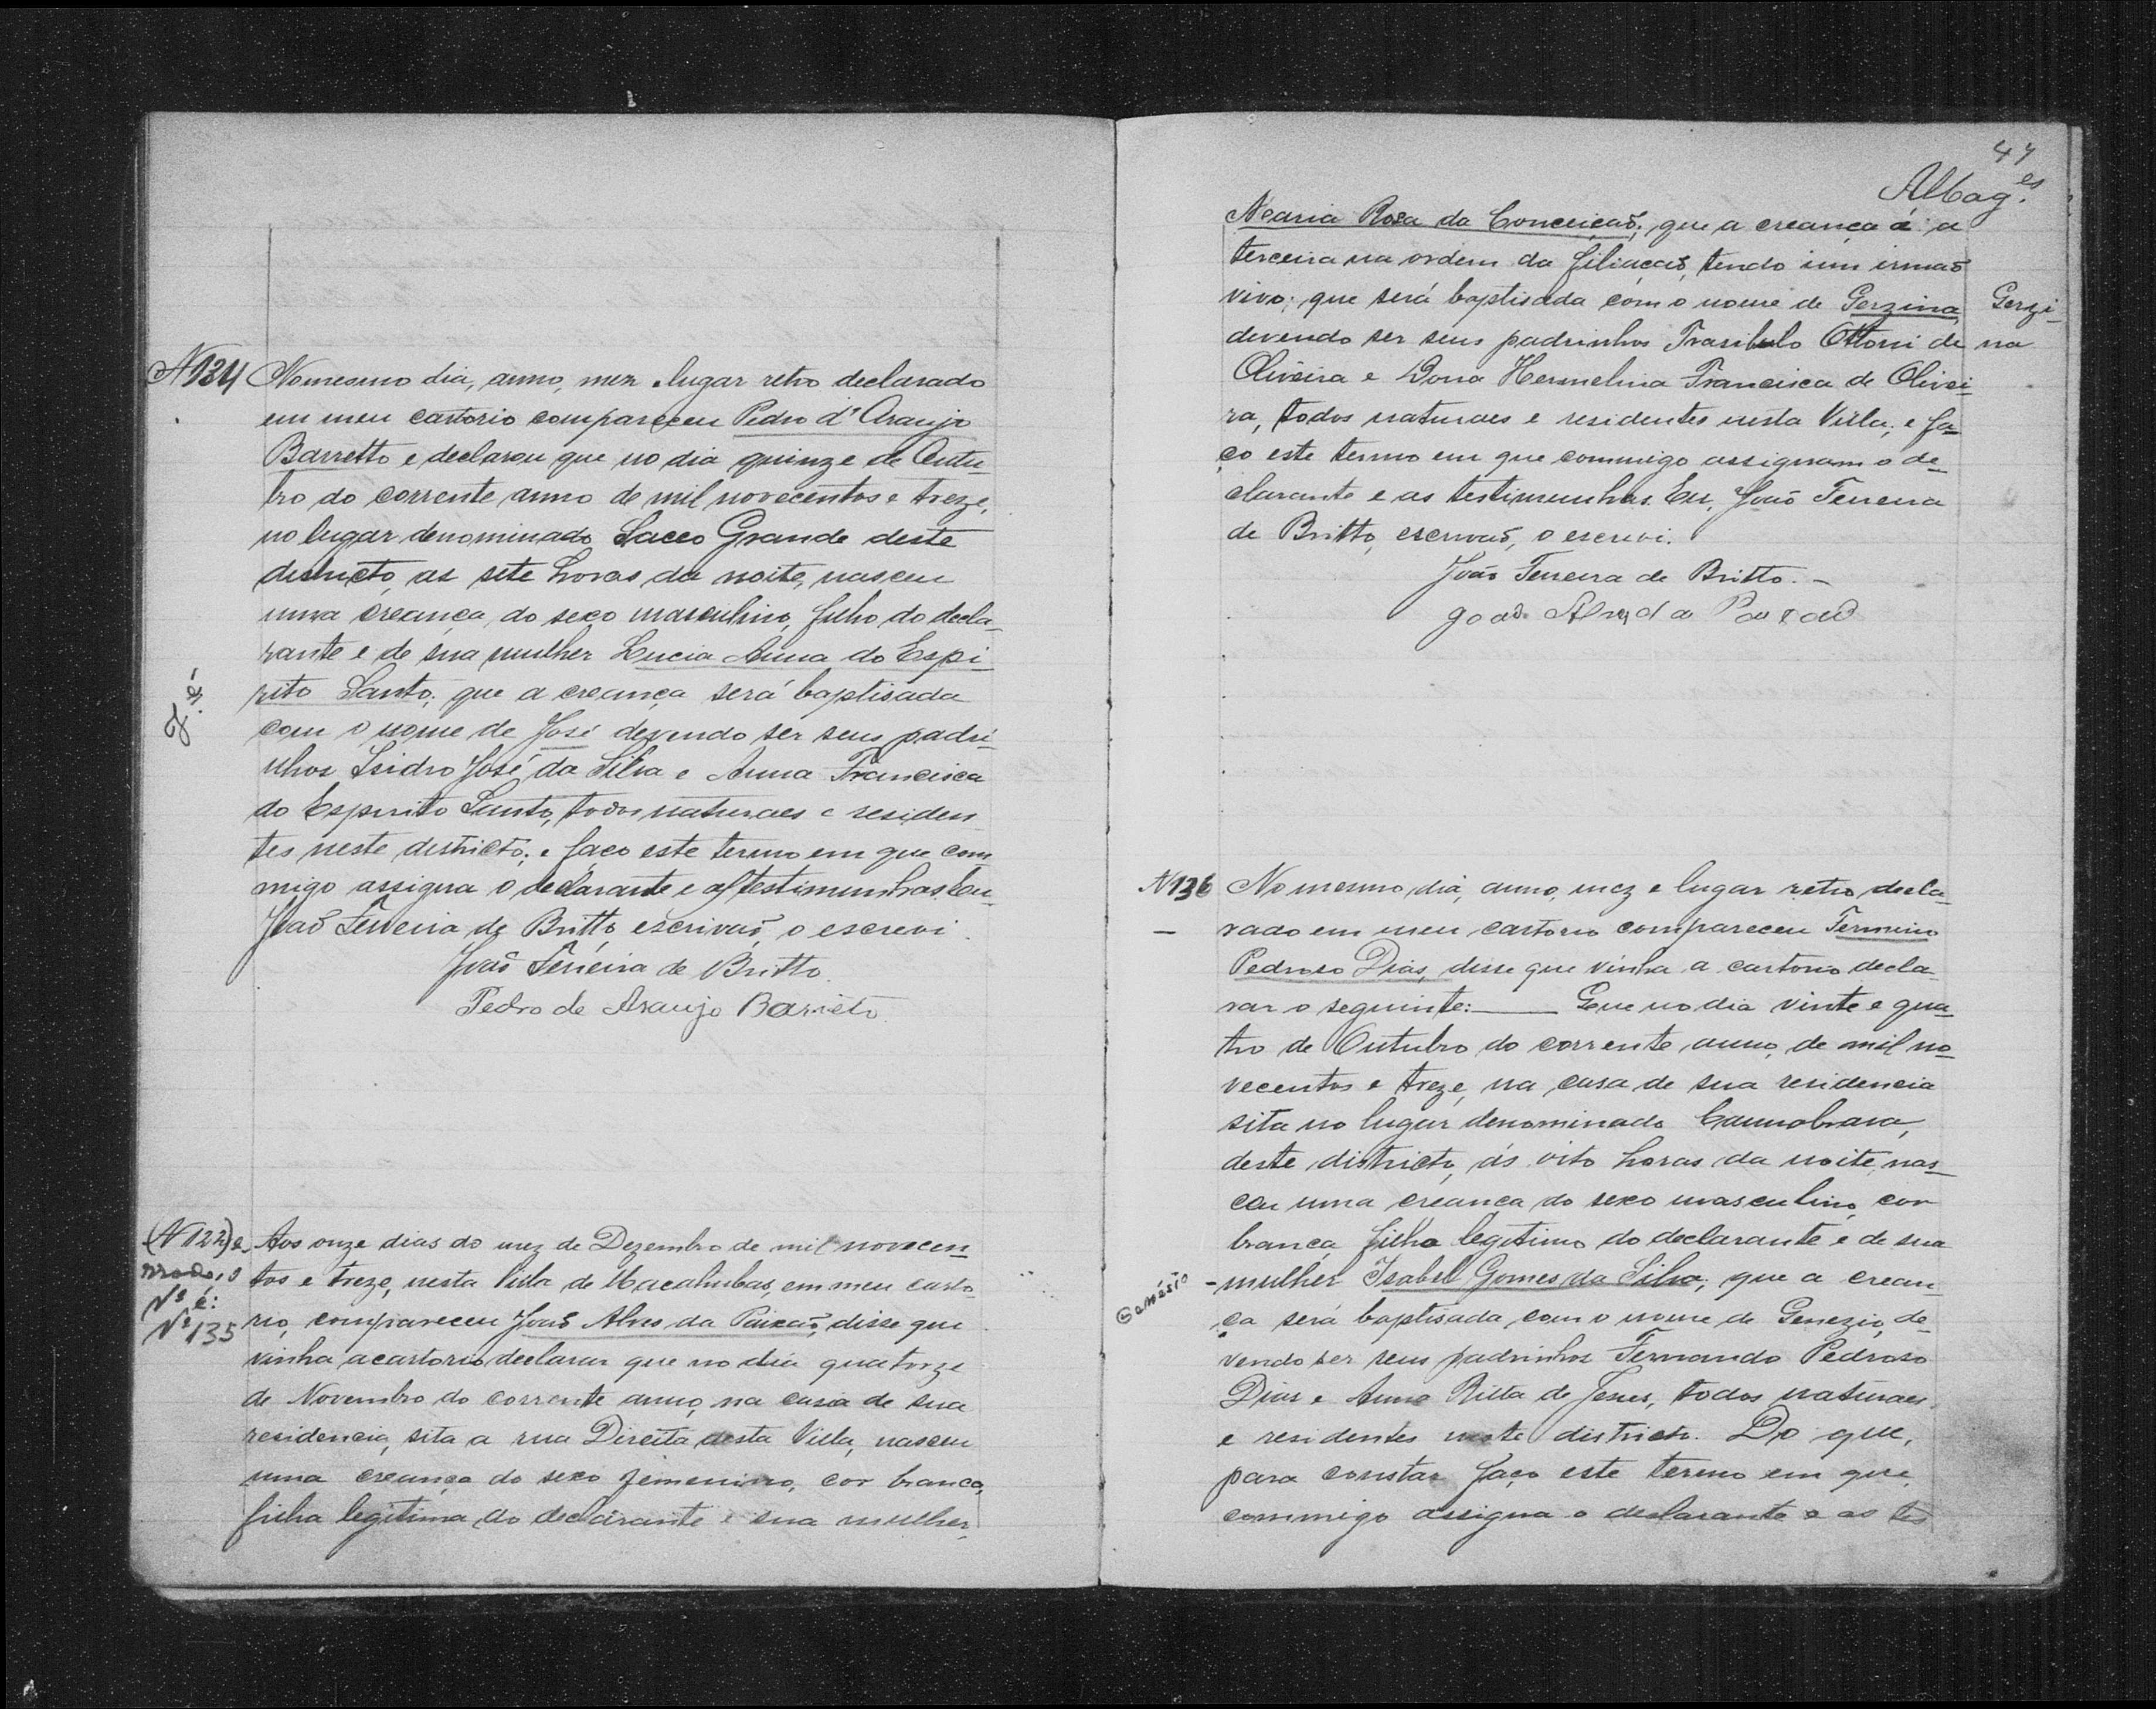 N 134
No mesmo dia, anno, mez e lugar retro declarado
em meu cartorio compareceu Pedro d'Araujo
Barretto e declarou que no dia quinze de Outu-
bro do corrente anno de mil novecentos e treze,
no lugar denominado Sacco Grande deste
districto, as sete horas da noite, nasceu
uma creança do sexo masculino, filho do decla-
rante e de sua mulher Lucia Anna do Espi-
rito Santo; que a creança será baptisada
com o nome de José devendo ser seus padri-
nhos Isidro José da Silva e Anna Francisca
do Espirito Santo, todos naturaes e residen
tes neste districto; e faço este termo em que com
migo assigna o declarante e as testimunhas. Eu,
João Ferreira de Britto, escrivaõ, o escrevi.
João Ferreira de Britto.
Pedro de Araujo Barreto
José
(N 122) e
o
Nº é:
Nº 135
Aos onze dias do mez de Dezembro de mil novecen
tos e treze, nesta Villa de Macahubas, em meu carto-
rio, compareceu João Alves da Paixaõ, disse que
vinha a cartorio declarar que no dia quatorze
de Novembro do corrente anno, na casa de sua
residencia, sita a rua Direita desta Villa, nasceu
uma creança do sexo femenino, cor branca,
filha legitima do declarante e sua mulher,
47
Maria Rosa da Conceiçaõ; que a creança é a
terceira na ordem da filiaçaõ, tendo um irmaõ
vivo; que será baptisada com o nome de Gerzina
Gerzi-
na
devendo ser seus padrinhos Trasibulo Ottoni de
Oliveira e Dona Hermelina Francisca de Olivei
ra, todos naturaes e residentes nesta Villa; e fa-
ço este termo em que commigo assignam o de-
clarante e as testimunhas. Eu, João Ferreira
de Britto, escrivaõ, o escrevi.
João Ferreira de Britto. -
N 136
No mesmo dia, anno, mez e lugar retro decla-
rado em meu cartorio compareceu Firmino
Pedroso Dias, disse que vinha a cartorio decla-
rar o seguinte: —— Que no dia vinte e qua-
tro de Outubro do corrente anno, de mil no-
vecentos e treze, na casa de sua residencia
sita no lugar denominado Cannabrava,
deste districto, ás oito horas da noite, nas-
ceu uma creança do sexo masculino, cor
branca, filho legitimo do declarante e de sua
mulher Isabel Gomes da Silva; que a crean-
Genésio
ça será baptisada com o nome de Genezio, de-
vendo ser seus padrinhos Fernando Pedroso
Dias e Anna Ritta de Jesus, todos naturaes
e residentes neste districto. Do que,
para constar faço este termo em que
commigo assigna o declarante e as tes